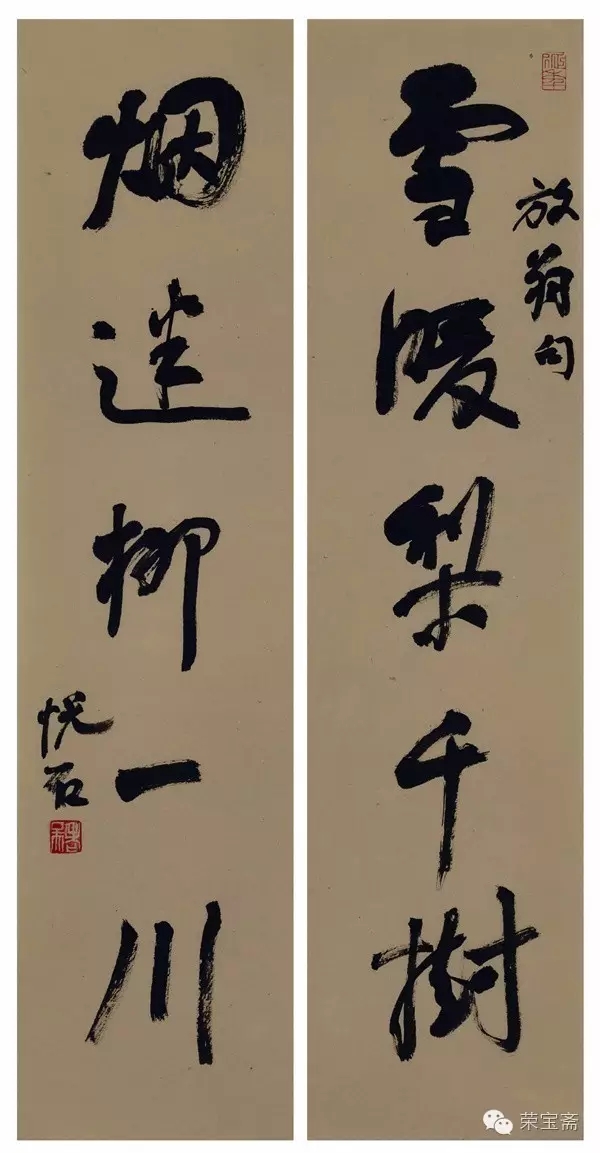 放翁句
雪暖梨千樹
烟迷柳一川
悦石
荣宝斋